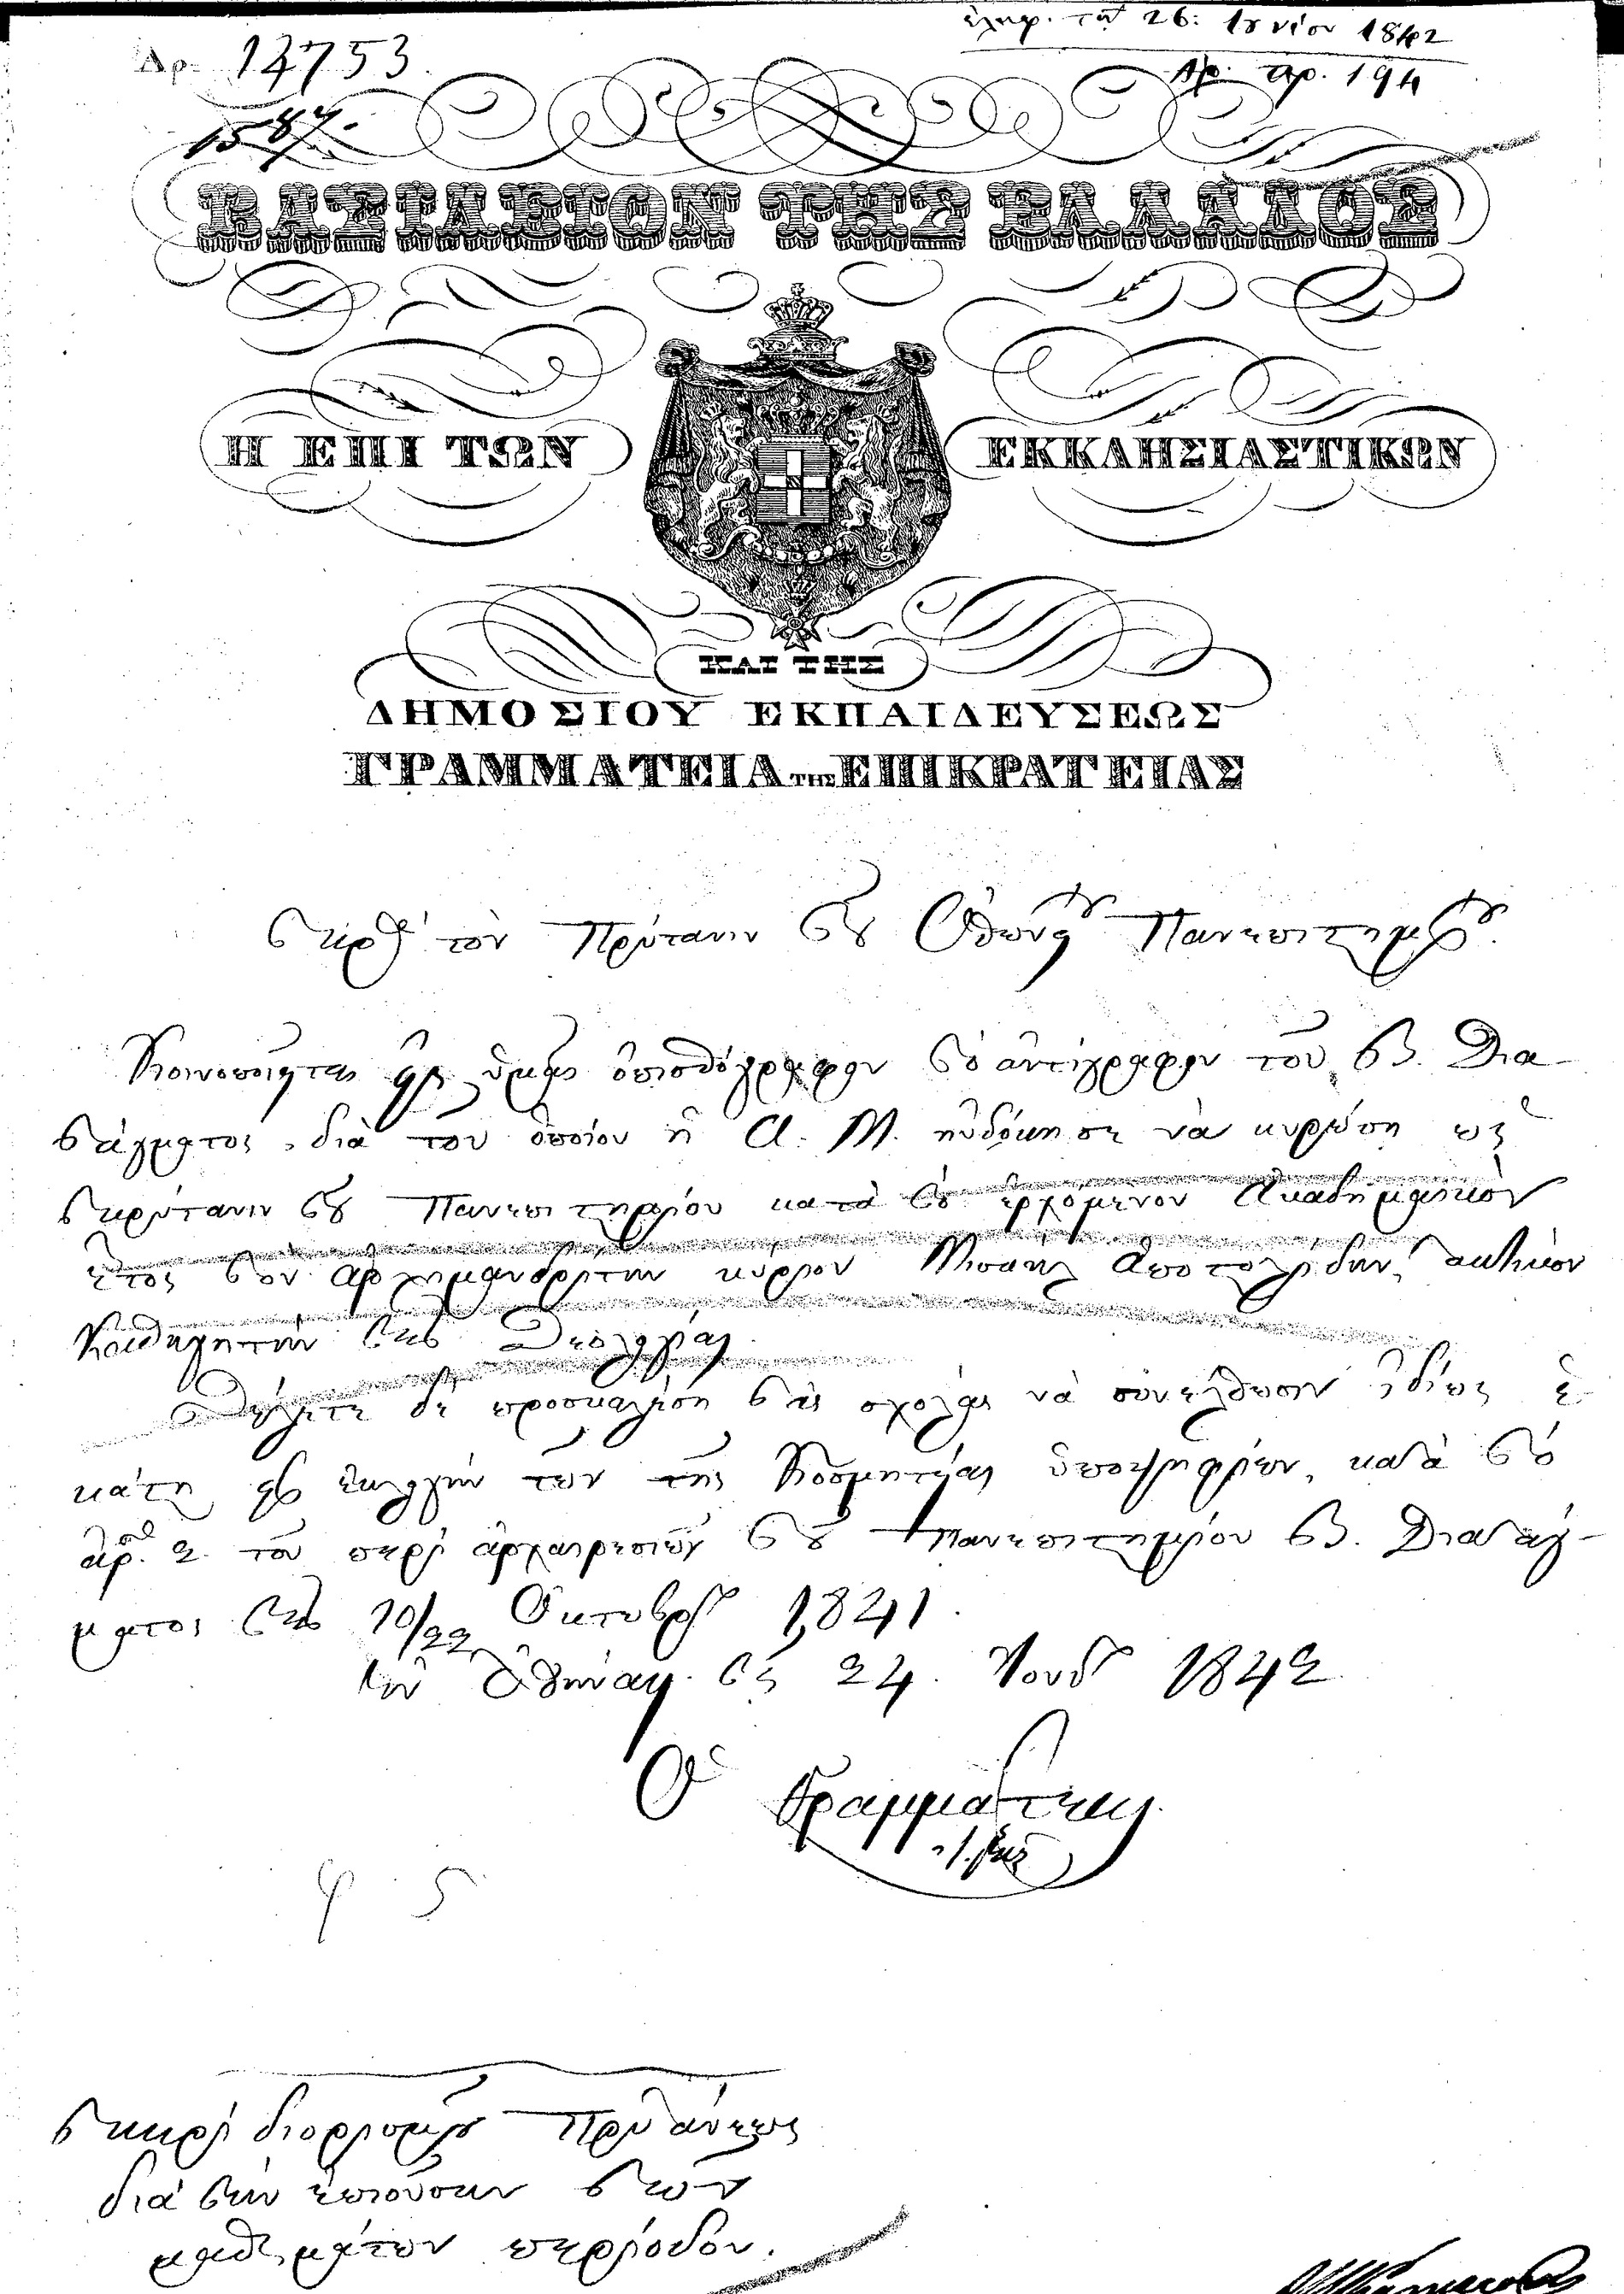 Αρ. 13753
ἐλήφ. τῇ 26: Ἰουνίου 1842
Ἀρ. πρ. 194
1587.
ΒΑΣΙΛΕΙΟΝ ΤΗΣ ΕΛΛΑΔΟΣ
Η ΕΠΙ ΤΩΝ ΕΚΚΛΗΣΙΑΣΤΙΚΩΝ
ΚΑΙ ΤΗΣ
ΔΗΜΟΣΙΟΥ ΕΚΠΑΙΔΕΥΣΕΩΣ
ΓΡΑΜΜΑΤΕΙΑ ΤΗΣ ΕΠΙΚΡΑΤΕΙΑΣ
Πρὸς τὸν Πρύτανιν τοῦ Ὀθων. Πανεπιστημίου.
Κοινοποιεῖται πρὸς ὑμᾶς τὸ ἀντίγραφον τοῦ Β. Δια-
τάγματος, διὰ τοῦ ὁποίου ἡ Α. Μ. ηὐδόκησε νὰ κυρώσῃ ὡς
πρύτανιν τοῦ Πανεπιστημίου κατὰ τὸ ἐρχόμενον Ἀκαδημαϊκὸν
ἔτος τὸν ἀρχιμανδρίτην κύριον Μισαὴλ Ἀποστολίδην, τακτικὸν
Καθηγητὴν τῆς Θεολογίας.
Θέλετε δὲ προσκαλέσῃ τὰς σχολὰς νὰ συνέλθωσιν ἰδίως ἑ-
κάστη πρὸς ἐκλογὴν τῶν τῆς Κοσμητείας ὑποψηφίων, κατὰ τὸ
ἄρθρ. 2. τοῦ περὶ ἀρχαιρεσιῶν τοῦ Πανεπιστημίου Β. Διατάγ-
ματος τῆς 10/22 Ὀκτωβρίου 1841.
Ἐν Ἀθήναις τῇ 24. Ἰουν. 1842
Ὁ Γραμματεὺς
περὶ διορισμοῦ Πρυτάνεως
διὰ τὴν ἐπιοῦσαν τῶν
μαθημάτων περίοδον.